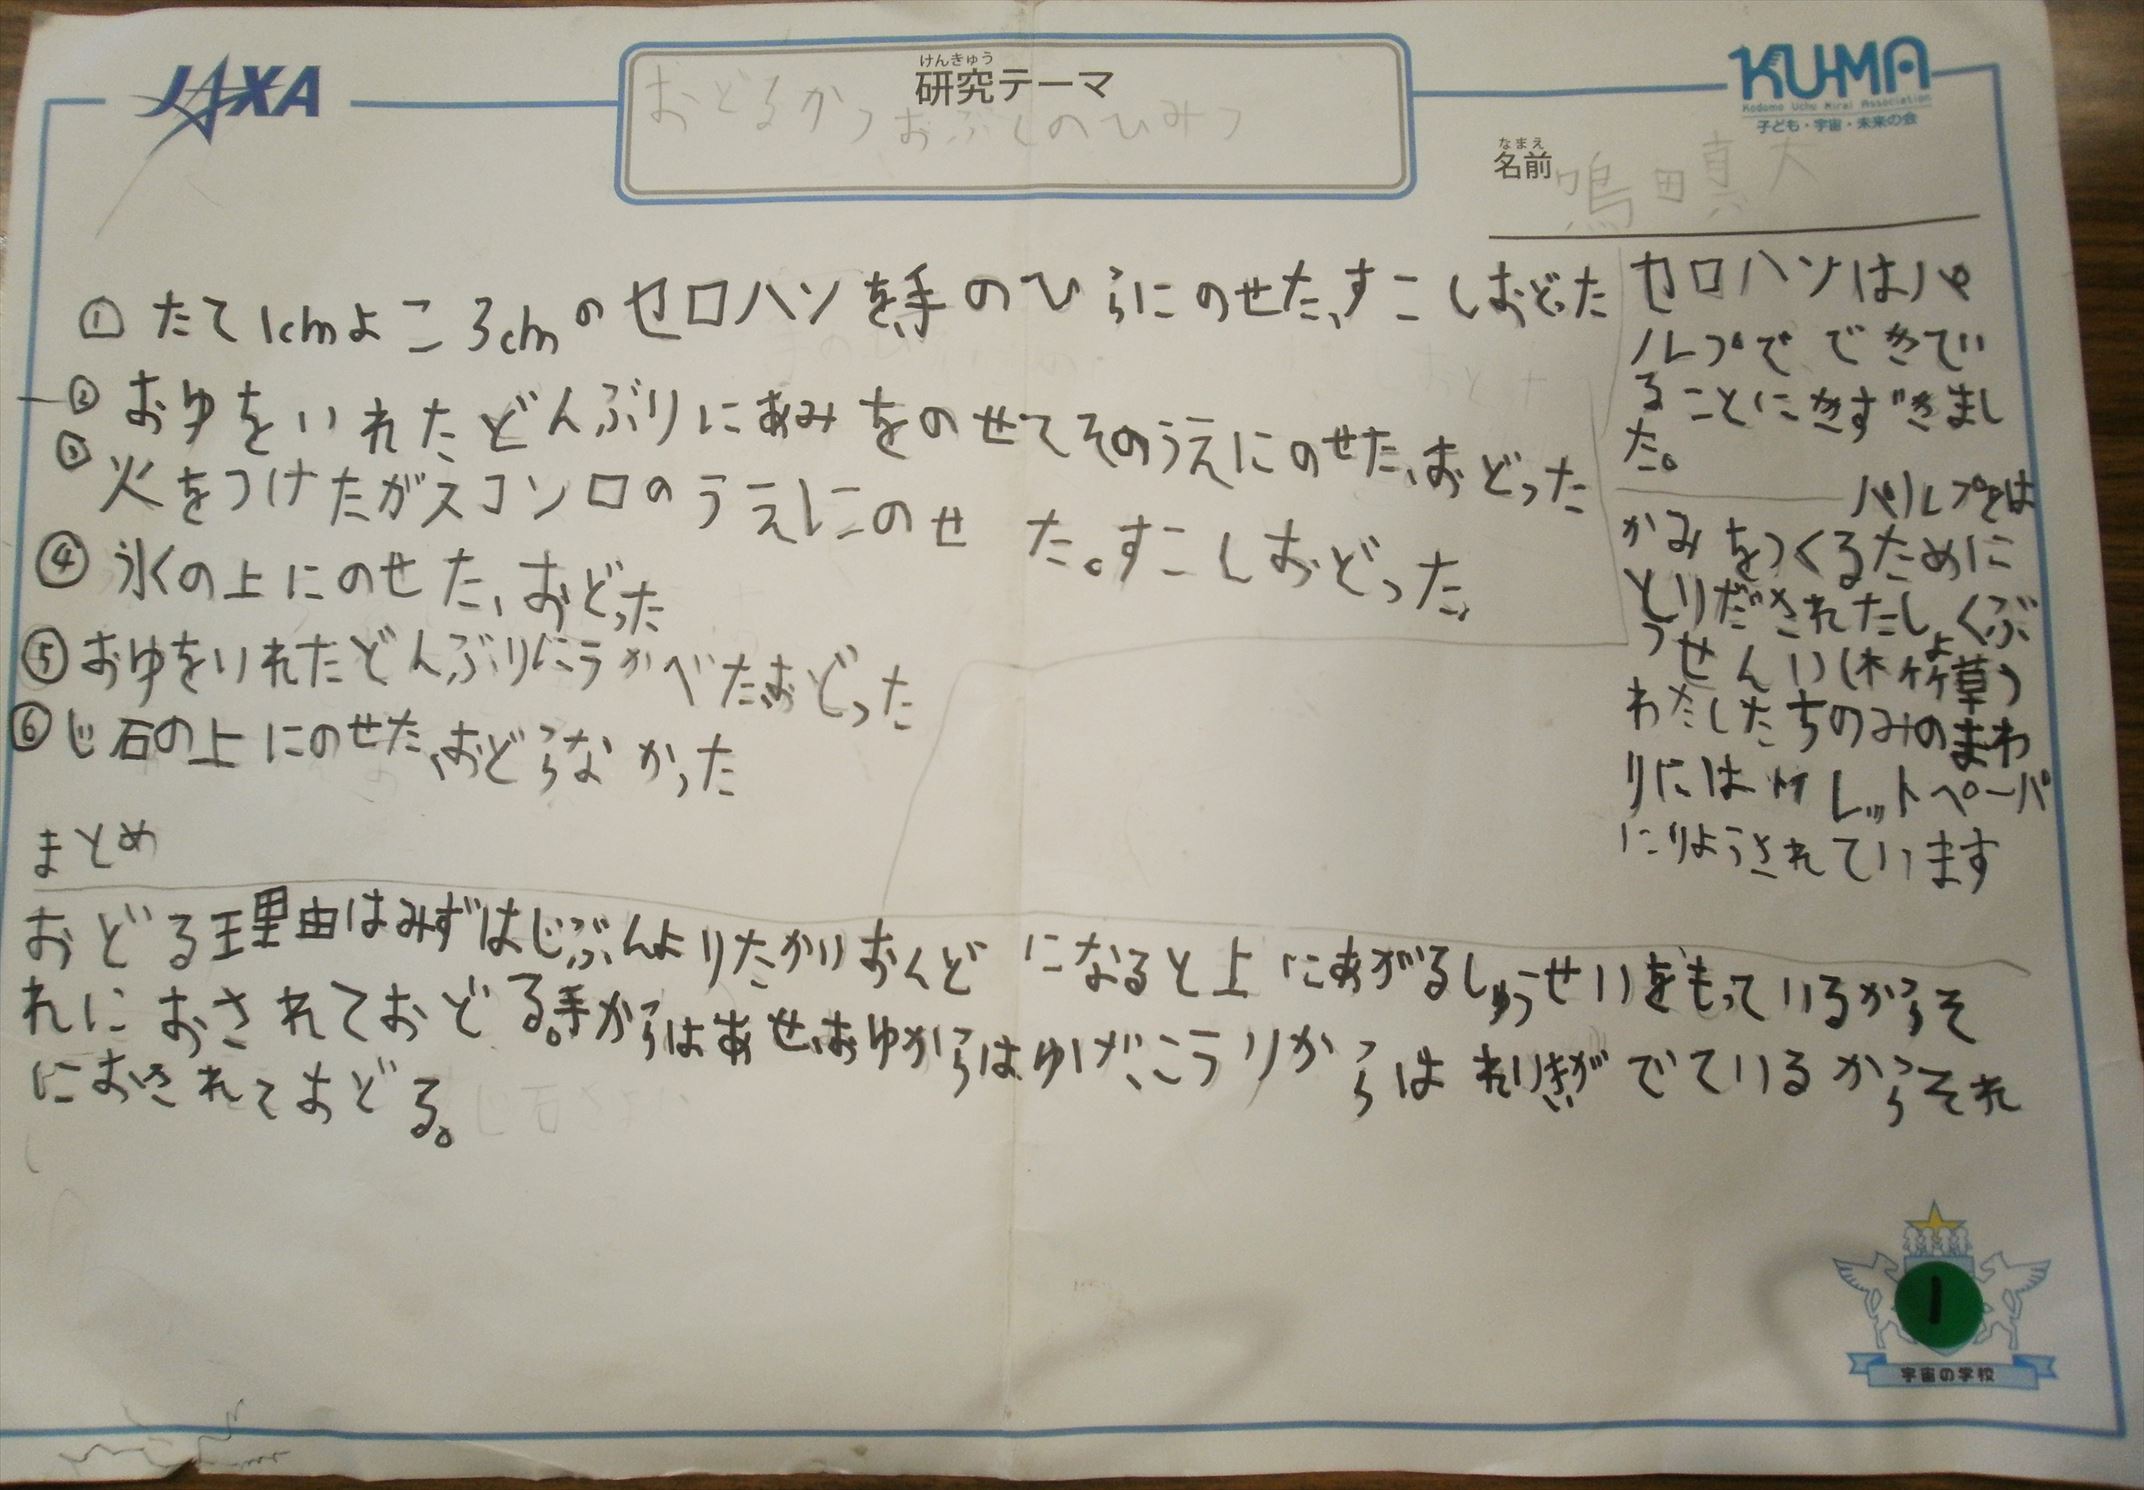 JAXA
けんきゅう
研究テーマ
おどるかつおぶしのひみつ
KU-MA
Kodomo Uchu Mirai Association
子ども・宇宙・未来の会
なまえ
名前 鳴田真大
① たて1cmよこ3cmのセロハンを手のひらにのせた、すこしおどった
② おゆをいれたどんぶりにあみをのせてそのうえにのせた、おどった
③ 火をつけたガスコンロのうえにのせた。すこしおどった、
④ 氷の上にのせた、おどった
⑤ おゆをいれたどんぶりにうかべた、おどった
⑥ じ石の上にのせた、おどらなかった
セロハンはパ
ルプでできてい
ることにきずきまし
た。
パルプとは
かみをつくるために
とりだされたしょくぶ
つせんい(木竹草)
わたしたちのみのまわ
りにはトイレットペーパ
にりようされています
まとめ
おどる理由はみずはじぶんよりたかいおんどになると上にあがるしゅうせいをもっているからそ
れにおされておどる。手からはあせ、おゆからはゆげ、こうりからはれいきがでているからそれ
におされておどる。
1
宇宙の学校